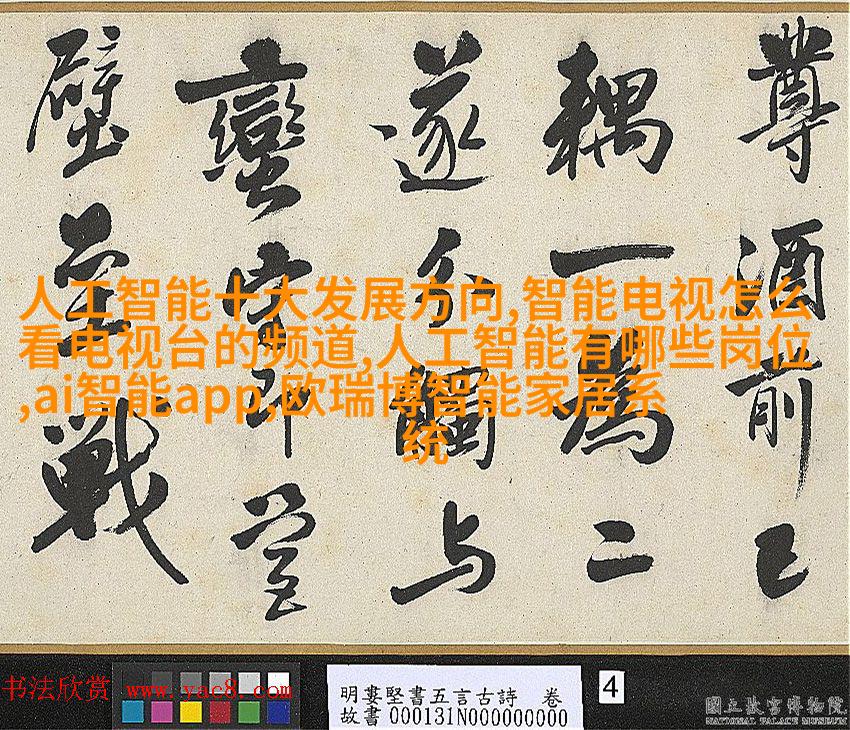 尊酒前已
耦一為二
遂分觸与
蠻即營
壁壘戰
人工智能十大发展方向,智能电视怎么
看电视台的频道,人工智能有哪些岗位
,ai智能app,欧瑞博智能家居系
统
书法欣赏 www.yac8.com
明婁堅書五言古詩 卷
故書 000131N000000000
4
國立故宮博物院
NATIONAL PALACE MUSEUM